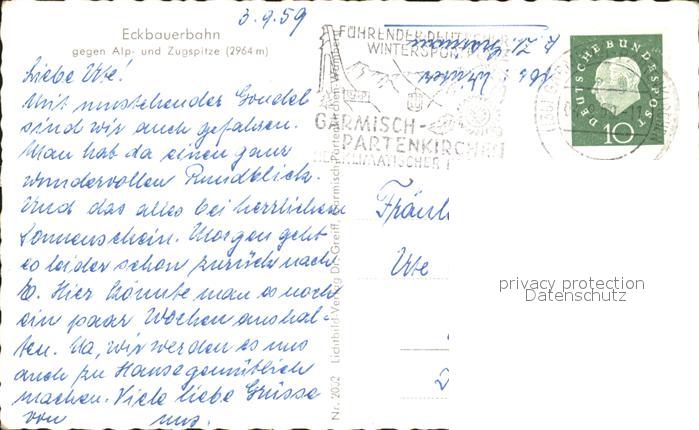 3.9.59
Eckbauerbahn
gegen Alp- und Zugspitze (2964 m)
Liebe Ute!
Mit umstehender Gondel
sind wir auch gefahren.
Man hat da einen ganz
wundervollen Rundblick.
Und das alles bei herrlichem
Sonnenschein. Morgen geht
es leider schon zurück nach
Hier könnte man es noch
ein paar Wochen aushal-
ten. Na, wir werden es uns
auch zu Hause gemütlich
machen. Viele liebe Grüsse
von uns.
Nr. 2002 Lichtbild-Verlag Dr. Greiff, Garmisch-Partenkirchen
FÜHRENDER DEUTSCHER
WINTERSPORT
GARMISCH-
PARTENKIRCHEN
HEILKLIMATISCHER
DEUTSCHE BUNDESPOST
10
Fräul
Ute
privacy protection
Datenschutz